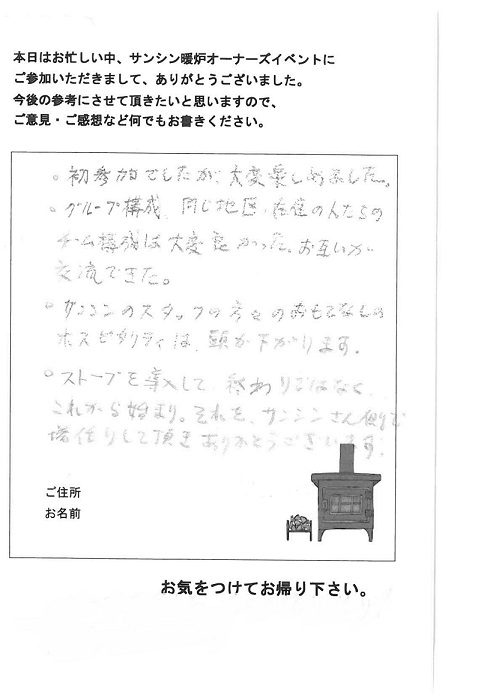 本日はお忙しい中、サンシン暖炉オーナーズイベントに
ご参加いただきまして、ありがとうございました。
今後の参考にさせて頂きたいと思いますので、
ご意見・ご感想など何でもお書きください。
○ 初参加でしたが、大変楽しめました。
○ グループ構成、同じ地区、在住の人たちの
チーム構成は大変良かった。お互いが
交流できた。
○ サンシンのスタッフの方々のおもてなしの
ホスピタリティは、頭が下がります。
○ ストーブを導入して、終わりではなく、
これから始まり。それを、サンシンさん
して頂きありがとうございます。
ご住所
お名前
お気をつけてお帰り下さい。